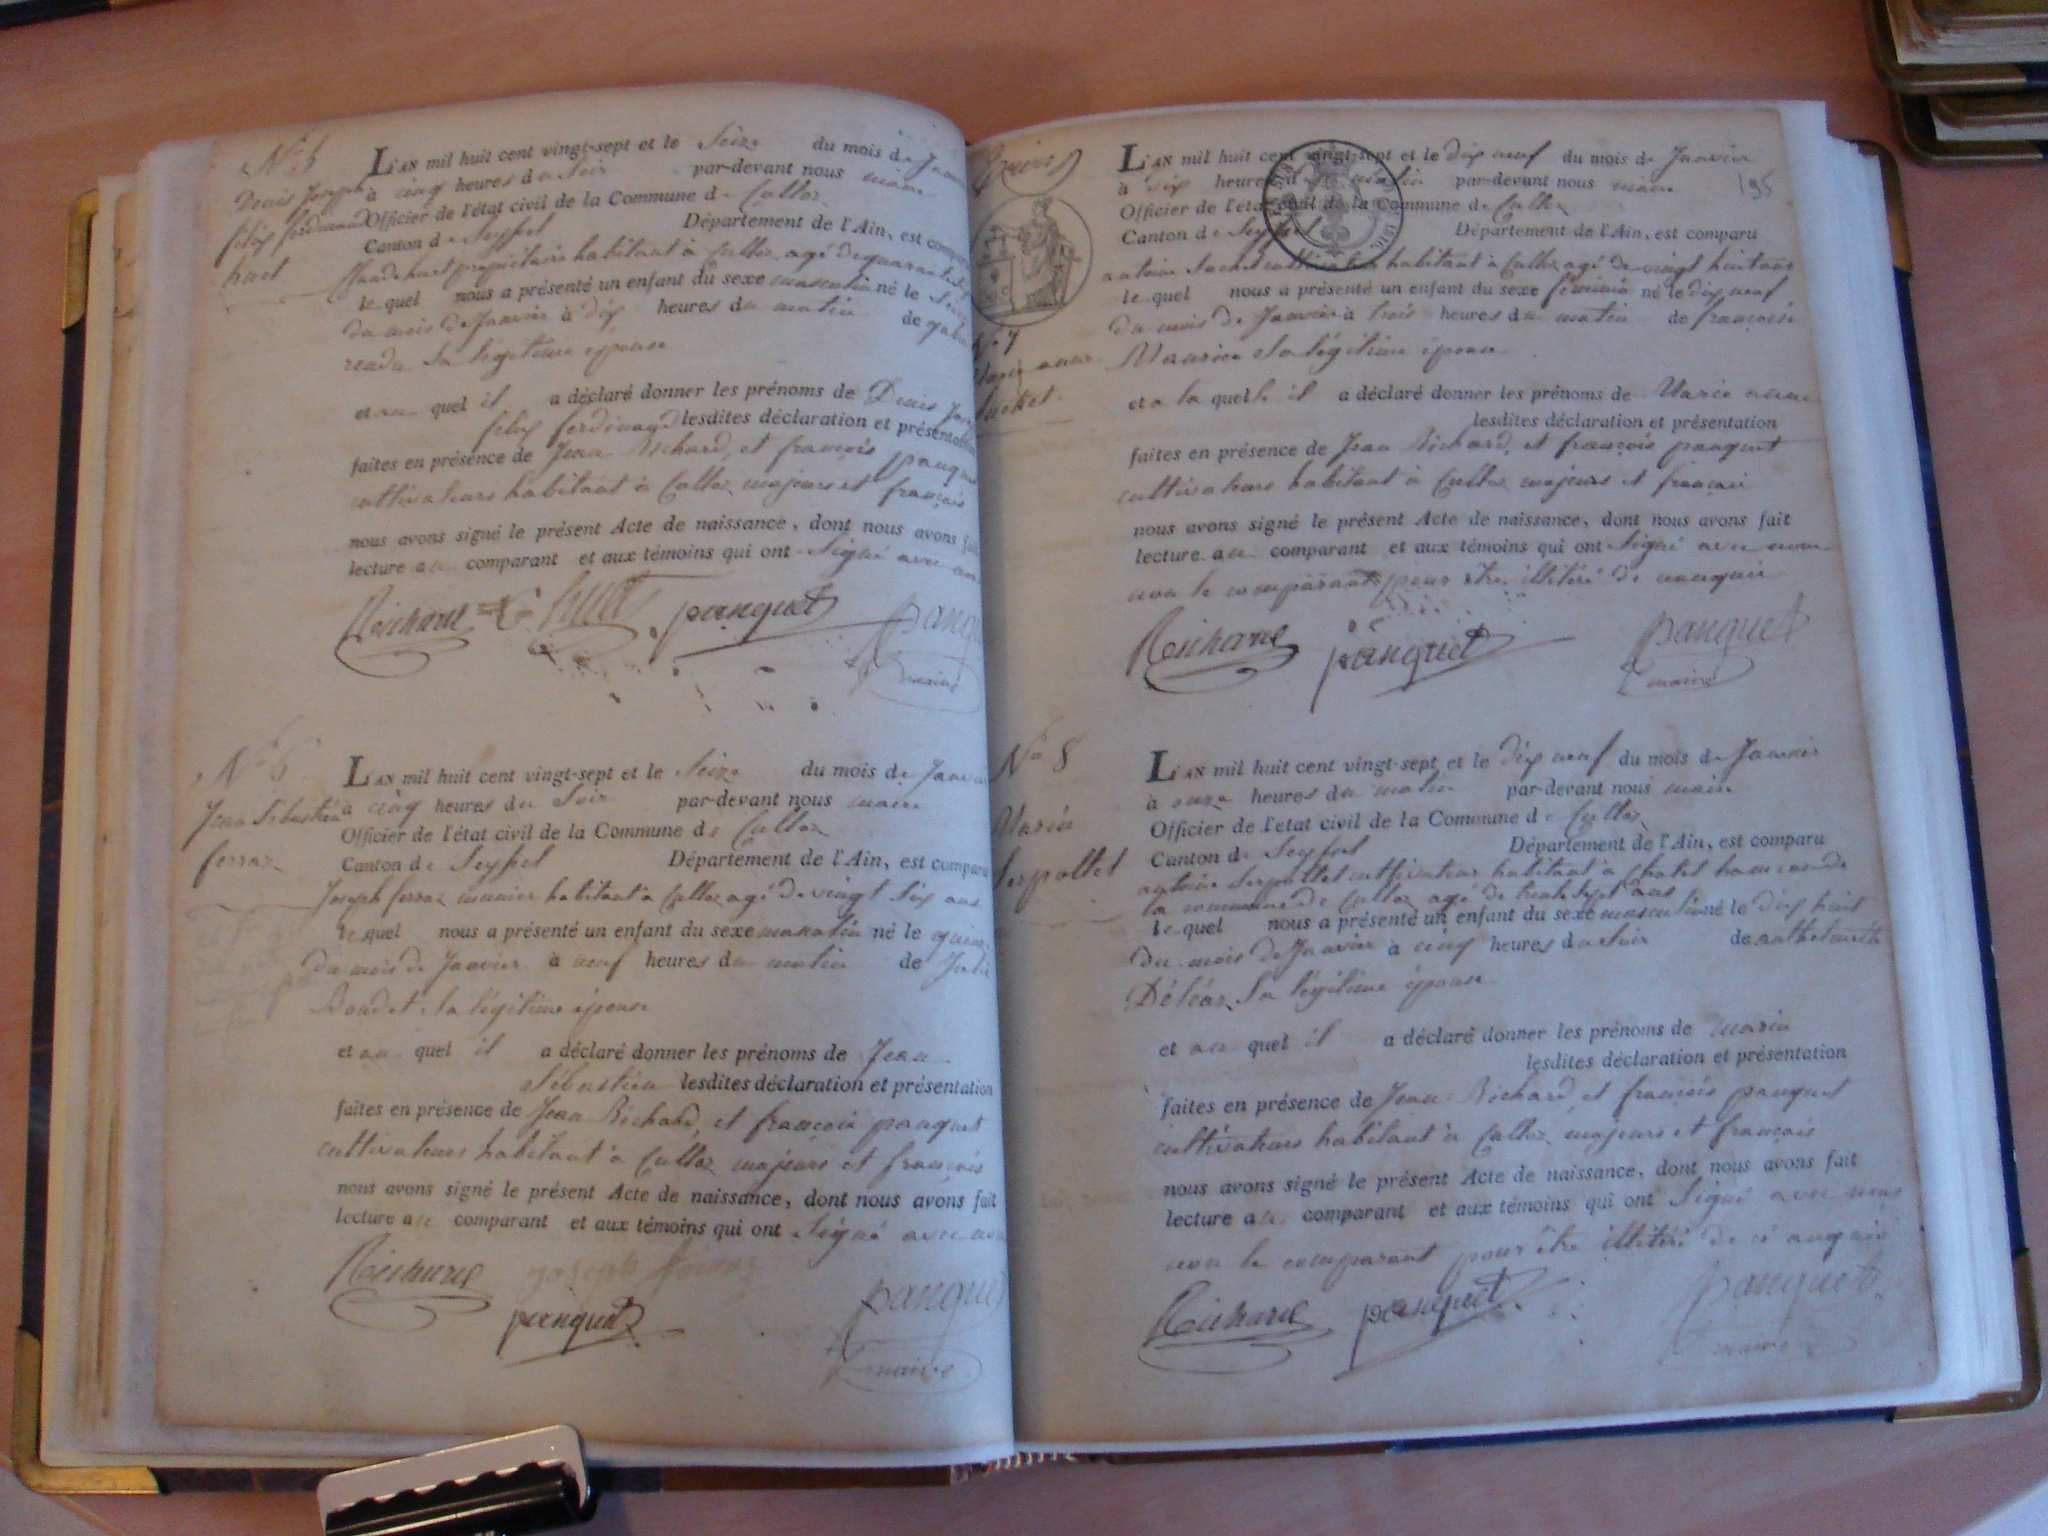 N.º 5
Denis Joseph
felix ferdinand
huet
L'AN mil huit cent vingt-sept et le Seize du mois de
à cinq heures du Soir par-devant nous maire
Officier de l'état civil de la Commune de Culloz
Canton de Seyssel Département de l'Ain, est comparu
huet propriétaire habitant à Culloz agé de
le quel nous a présenté un enfant du sexe masculin né le
du mois de Janvier à dix heures du matin de
sa légitime épouse
et au quel il a déclaré donner les prénoms de Denis
felix ferdinand lesdites déclaration et présentation
faites en présence de Jean Richard, et françois panquet
cultivateurs habitant à Culloz majeurs et français
nous avons signé le présent Acte de naissance, dont nous avons fait
lecture au comparant et aux témoins qui ont Signé avec nous
Richard huet panquet
maire
N.º 6
Jean Sebastien
ferraz
L'AN mil huit cent vingt-sept et le Seize du mois de Janvier
à cinq heures du Soir par-devant nous maire
Officier de l'état civil de la Commune de Culloz
Canton de Seyssel Département de l'Ain, est comparu
Joseph ferraz munier habitant à Culloz agé de vingt Six ans
le quel nous a présenté un enfant du sexe masculin né le quinze
du mois de Janvier à neuf heures du matin de Julie
Boudet Sa légitime épouse
et au quel il a déclaré donner les prénoms de Jean
Sébastien lesdites déclaration et présentation
faites en présence de Jean Richard, et françois panquet
cultivateurs habitant à Culloz majeurs et français
nous avons signé le présent Acte de naissance, dont nous avons fait
lecture au comparant et aux témoins qui ont Signé avec nous
Richard joseph ferraz
panquet panquet
maire
195
L'AN mil huit cent vingt-sept et le dix neuf du mois de Janvier
à heures du matin par-devant nous maire
Officier de l'état civil de la Commune de Culloz
Canton de Seyssel Département de l'Ain, est comparu
antoine Suchet cultivateur habitant à Culloz agé de vingt huit ans
le quel nous a présenté un enfant du sexe féminin né le dix neuf
du mois de Janvier à trois heures du matin de françoise
Maurier Sa légitime épouse
et a la quelle il a déclaré donner les prénoms de Marie anne
lesdites déclaration et présentation
faites en présence de Jean Richard, et françois panquet
cultivateurs habitant à Culloz majeurs et français
nous avons signé le présent Acte de naissance, dont nous avons fait
lecture au comparant et aux témoins qui ont Signé avec nous
non le comparant pour être illitéré de ce enquis
Richard panquet panquet
maire
N.º 8
Marin
Serpollet
L'AN mil huit cent vingt-sept et le dix neuf du mois de Janvier
à onze heures du matin par-devant nous maire
Officier de l'etat civil de la Commune de Culloz
Canton de Seyssel Département de l'Ain, est comparu
antoine Serpollet cultivateur habitant à
la commune de Culloz agé de trente Sept ans
le quel nous a présenté un enfant du sexe masculin né le dix huit
du mois de Janvier à cinq heures du Soir de
Déléaz Sa légitime épouse
et au quel il a déclaré donner les prénoms de marin
lesdites déclaration et présentation
faites en présence de Jean Richard et françois panquet
cultivateurs habitant à Culloz majeurs et français
nous avons signé le présent Acte de naissance, dont nous avons fait
lecture au comparant et aux témoins qui ont Signé avec nous
non le comparant pour être illitéré de ce enquis
Richard panquet panquet
maire